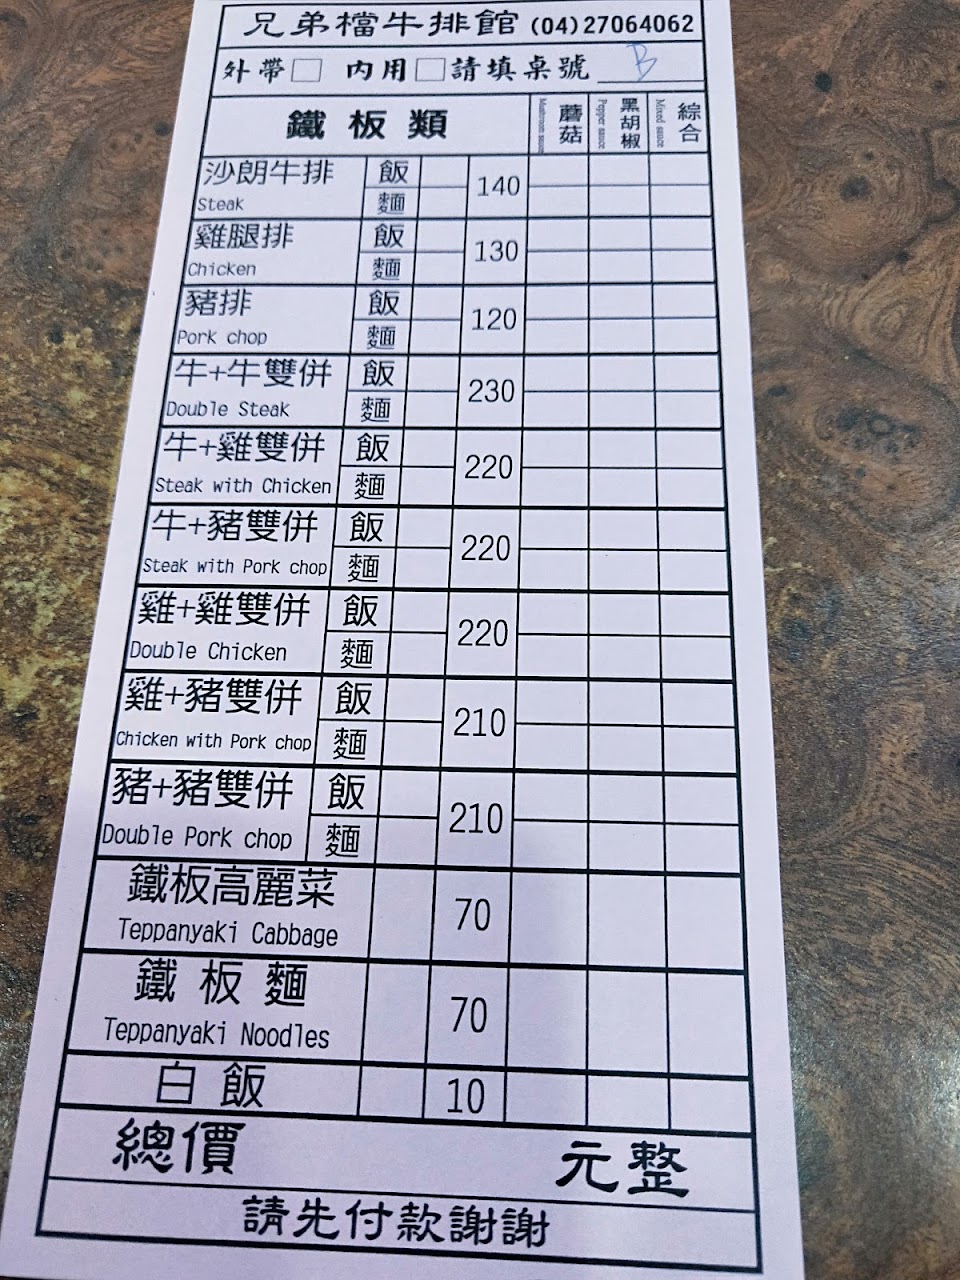 兄弟檔牛排館 (04)27064062
外帶□ 內用□請填桌號 B
鐵板類 蘑菇 Mushroom sauce 黑胡椒 Pepper sauce 綜合 Mixed sauce
沙朗牛排 飯 140
Steak 麵
雞腿排 飯 130
Chicken 麵
豬排 飯 120
Pork chop 麵
牛+牛雙併 飯 230
Double Steak 麵
牛+雞雙併 飯 220
Steak with Chicken 麵
牛+豬雙併 飯 220
Steak with Pork chop 麵
雞+雞雙併 飯 220
Double Chicken 麵
雞+豬雙併 飯 210
Chicken with Pork chop 麵
豬+豬雙併 飯 210
Double Pork chop 麵
鐵板高麗菜 70
Teppanyaki Cabbage
鐵板麵 70
Teppanyaki Noodles
白飯 10
總價 元整
請先付款謝謝